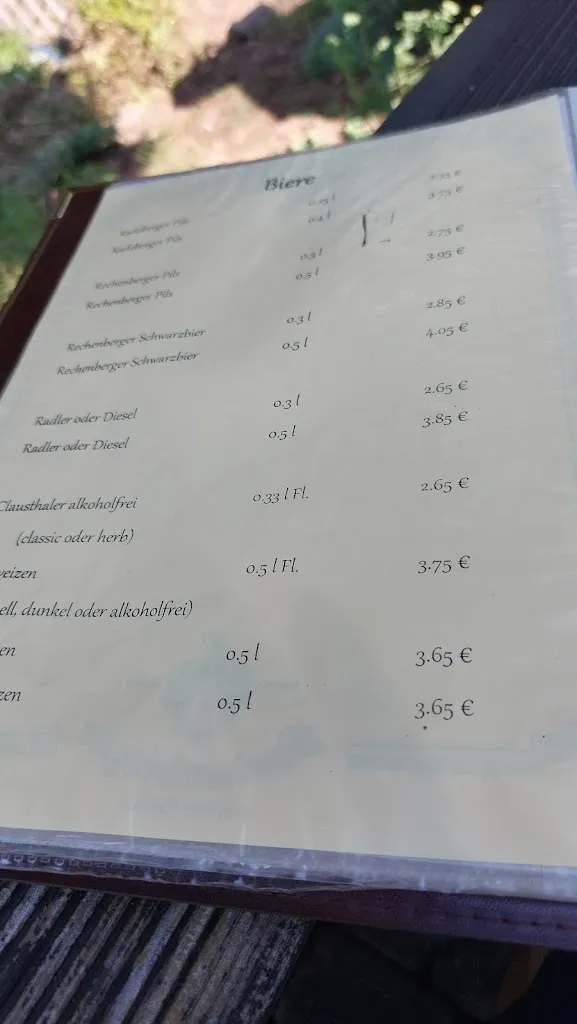 Biere
Radeberger Pils 0.25 l
Radeberger Pils 0.4 l 3.75 €
Rechenberger Pils 0.3 l 2.75 €
Rechenberger Pils 0.5 l 3.95 €
Rechenberger Schwarzbier 0.3 l 2.85 €
Rechenberger Schwarzbier 0.5 l 4.05 €
Radler oder Diesel 0.3 l 2.65 €
Radler oder Diesel 0.5 l 3.85 €
Clausthaler alkoholfrei 0.33 l Fl. 2.65 €
(classic oder herb)
weizen 0.5 l Fl. 3.75 €
ell, dunkel oder alkoholfrei)
en 0.5 l 3.65 €
zen 0.5 l 3.65 €